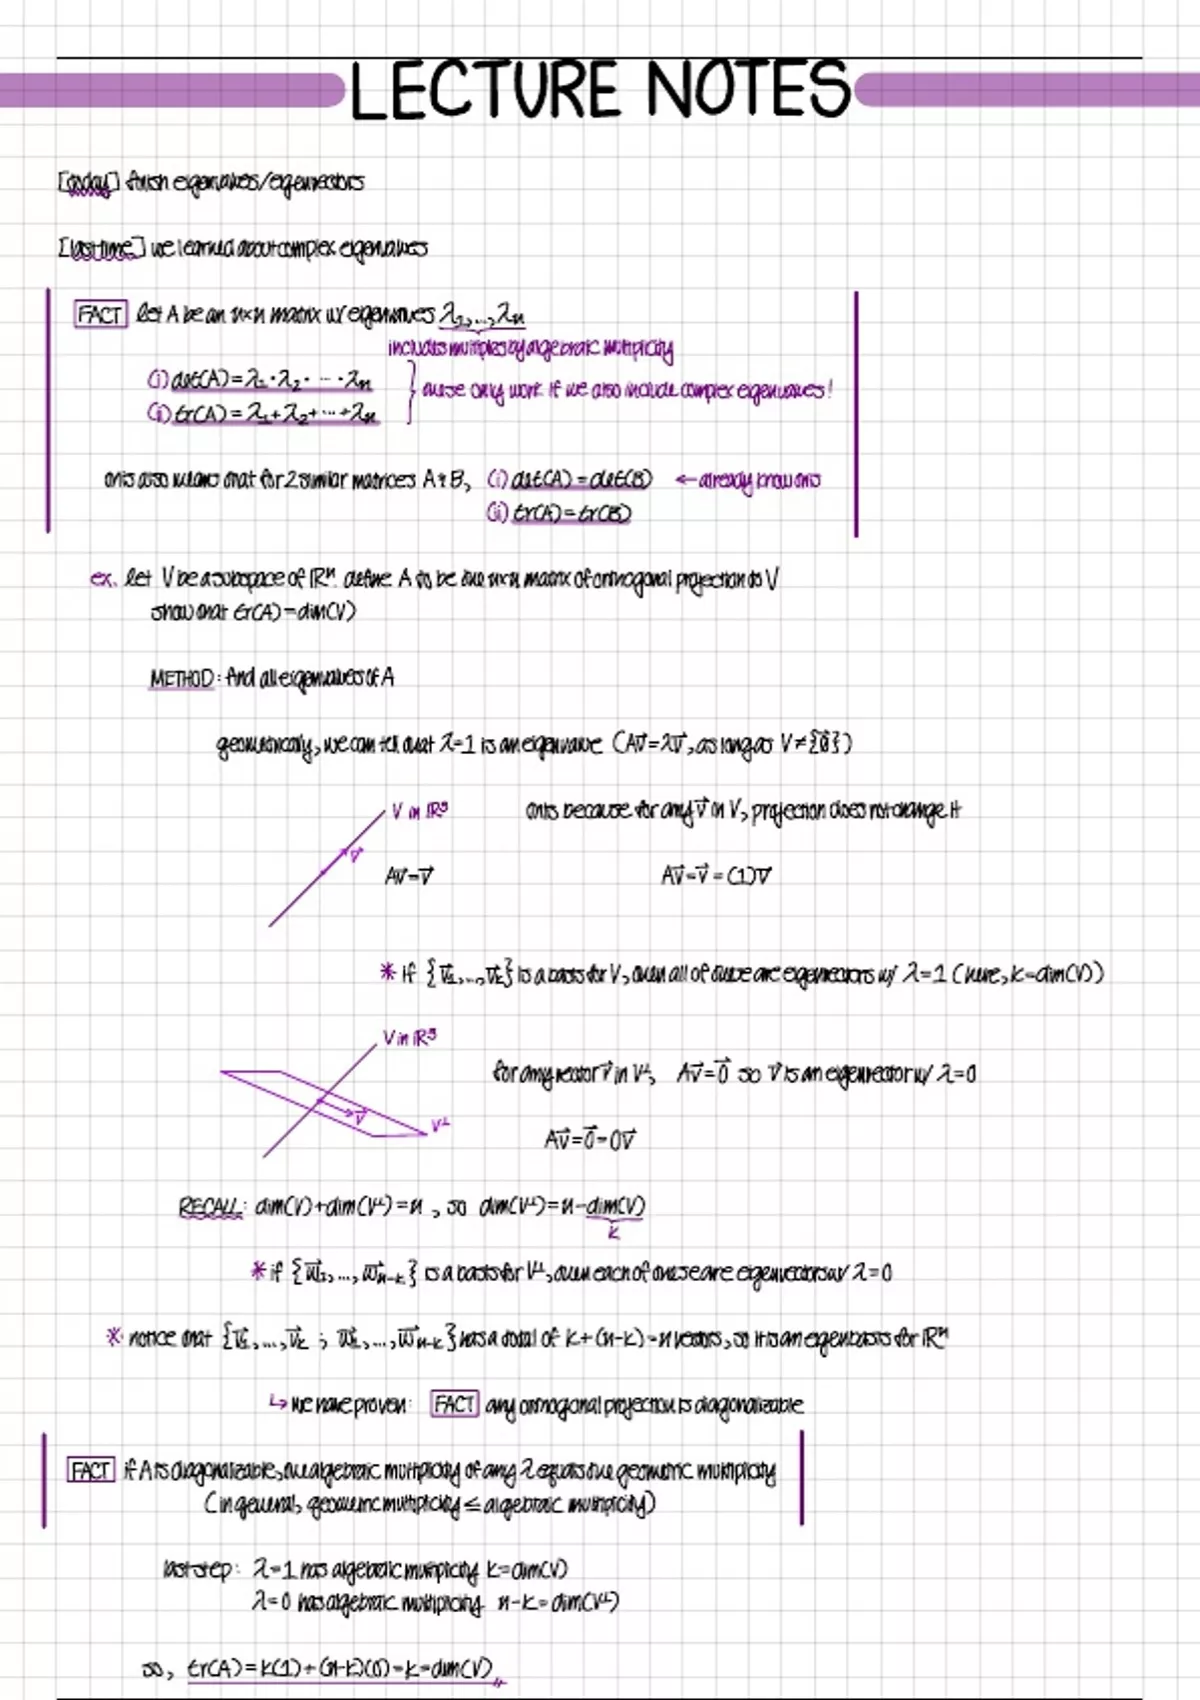 LECTURE NOTES
[today] finish eigenvalues/eigenvectors
[last time] we learned about complex eigenvalues
FACT let A be an n×n matrix w/ eigenvalues λ₁,...,λₙ
includes multiples by algebraic multiplicity
(i) det(A)=λ₁·λ₂· ··· ·λₙ
(ii) tr(A)=λ₁+λ₂+···+λₙ
} these only work if we also include complex eigenvalues!
this also means that for 2 similar matrices A & B, (i) det(A)=det(B) ← already know this
(ii) tr(A)=tr(B)
ex. let V be a subspace of ℝⁿ. define A to be the n×n matrix of orthogonal projection to V
show that tr(A)=dim(V)
METHOD: find all eigenvalues of A
geometrically, we can tell that λ=1 is an eigenvalue (Av⃗=λv⃗, as long as V≠{0⃗})
V in ℝ³ this because for any v⃗ in V, projection does not change it
v⃗
Av⃗=v⃗ Av⃗=v⃗=(1)v⃗
* if {v⃗₁,...,v⃗ₖ} is a basis for V, then all of these are eigenvectors w/ λ=1 (here, k=dim(V))
V in ℝ³
for any vector v⃗ in V⊥, Av⃗=0⃗ so v⃗ is an eigenvector w/ λ=0
v⃗ V⊥
Av⃗=0⃗=0v⃗
RECALL: dim(V)+dim(V⊥)=n, so dim(V⊥)=n-dim(V)
k
* if {w⃗₁,...,w⃗ₙ₋ₖ} is a basis for V⊥, then each of these are eigenvectors w/ λ=0
* notice that {v⃗₁,...,v⃗ₖ ; w⃗₁,...,w⃗ₙ₋ₖ} has a total of k+(n-k)=n vectors, so it is an eigenbasis for ℝⁿ
↳ we have proven: FACT any orthogonal projection is diagonalizable
FACT if A is diagonalizable, the algebraic multiplicity of any λ equals the geometric multiplicity
(in general, geometric multiplicity ≤ algebraic multiplicity)
last step: λ=1 has algebraic multiplicity k=dim(V)
λ=0 has algebraic multiplicity n-k=dim(V⊥)
so, tr(A)=k(1)+(n-k)(0)=k=dim(V)